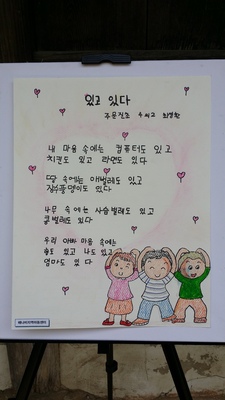 있고 있다
주문진초
내 마음 속에는 컴퓨터도 있고
치킨도 있고 라면도 있다
땅 속에는 애벌레도 있고
장수풍뎅이도 있다
나무 속에는 사슴벌레도 있고
콩벌레도 있다
우리 아빠 마음 속에는
술도 있고 나도 있고
엄마도 있다